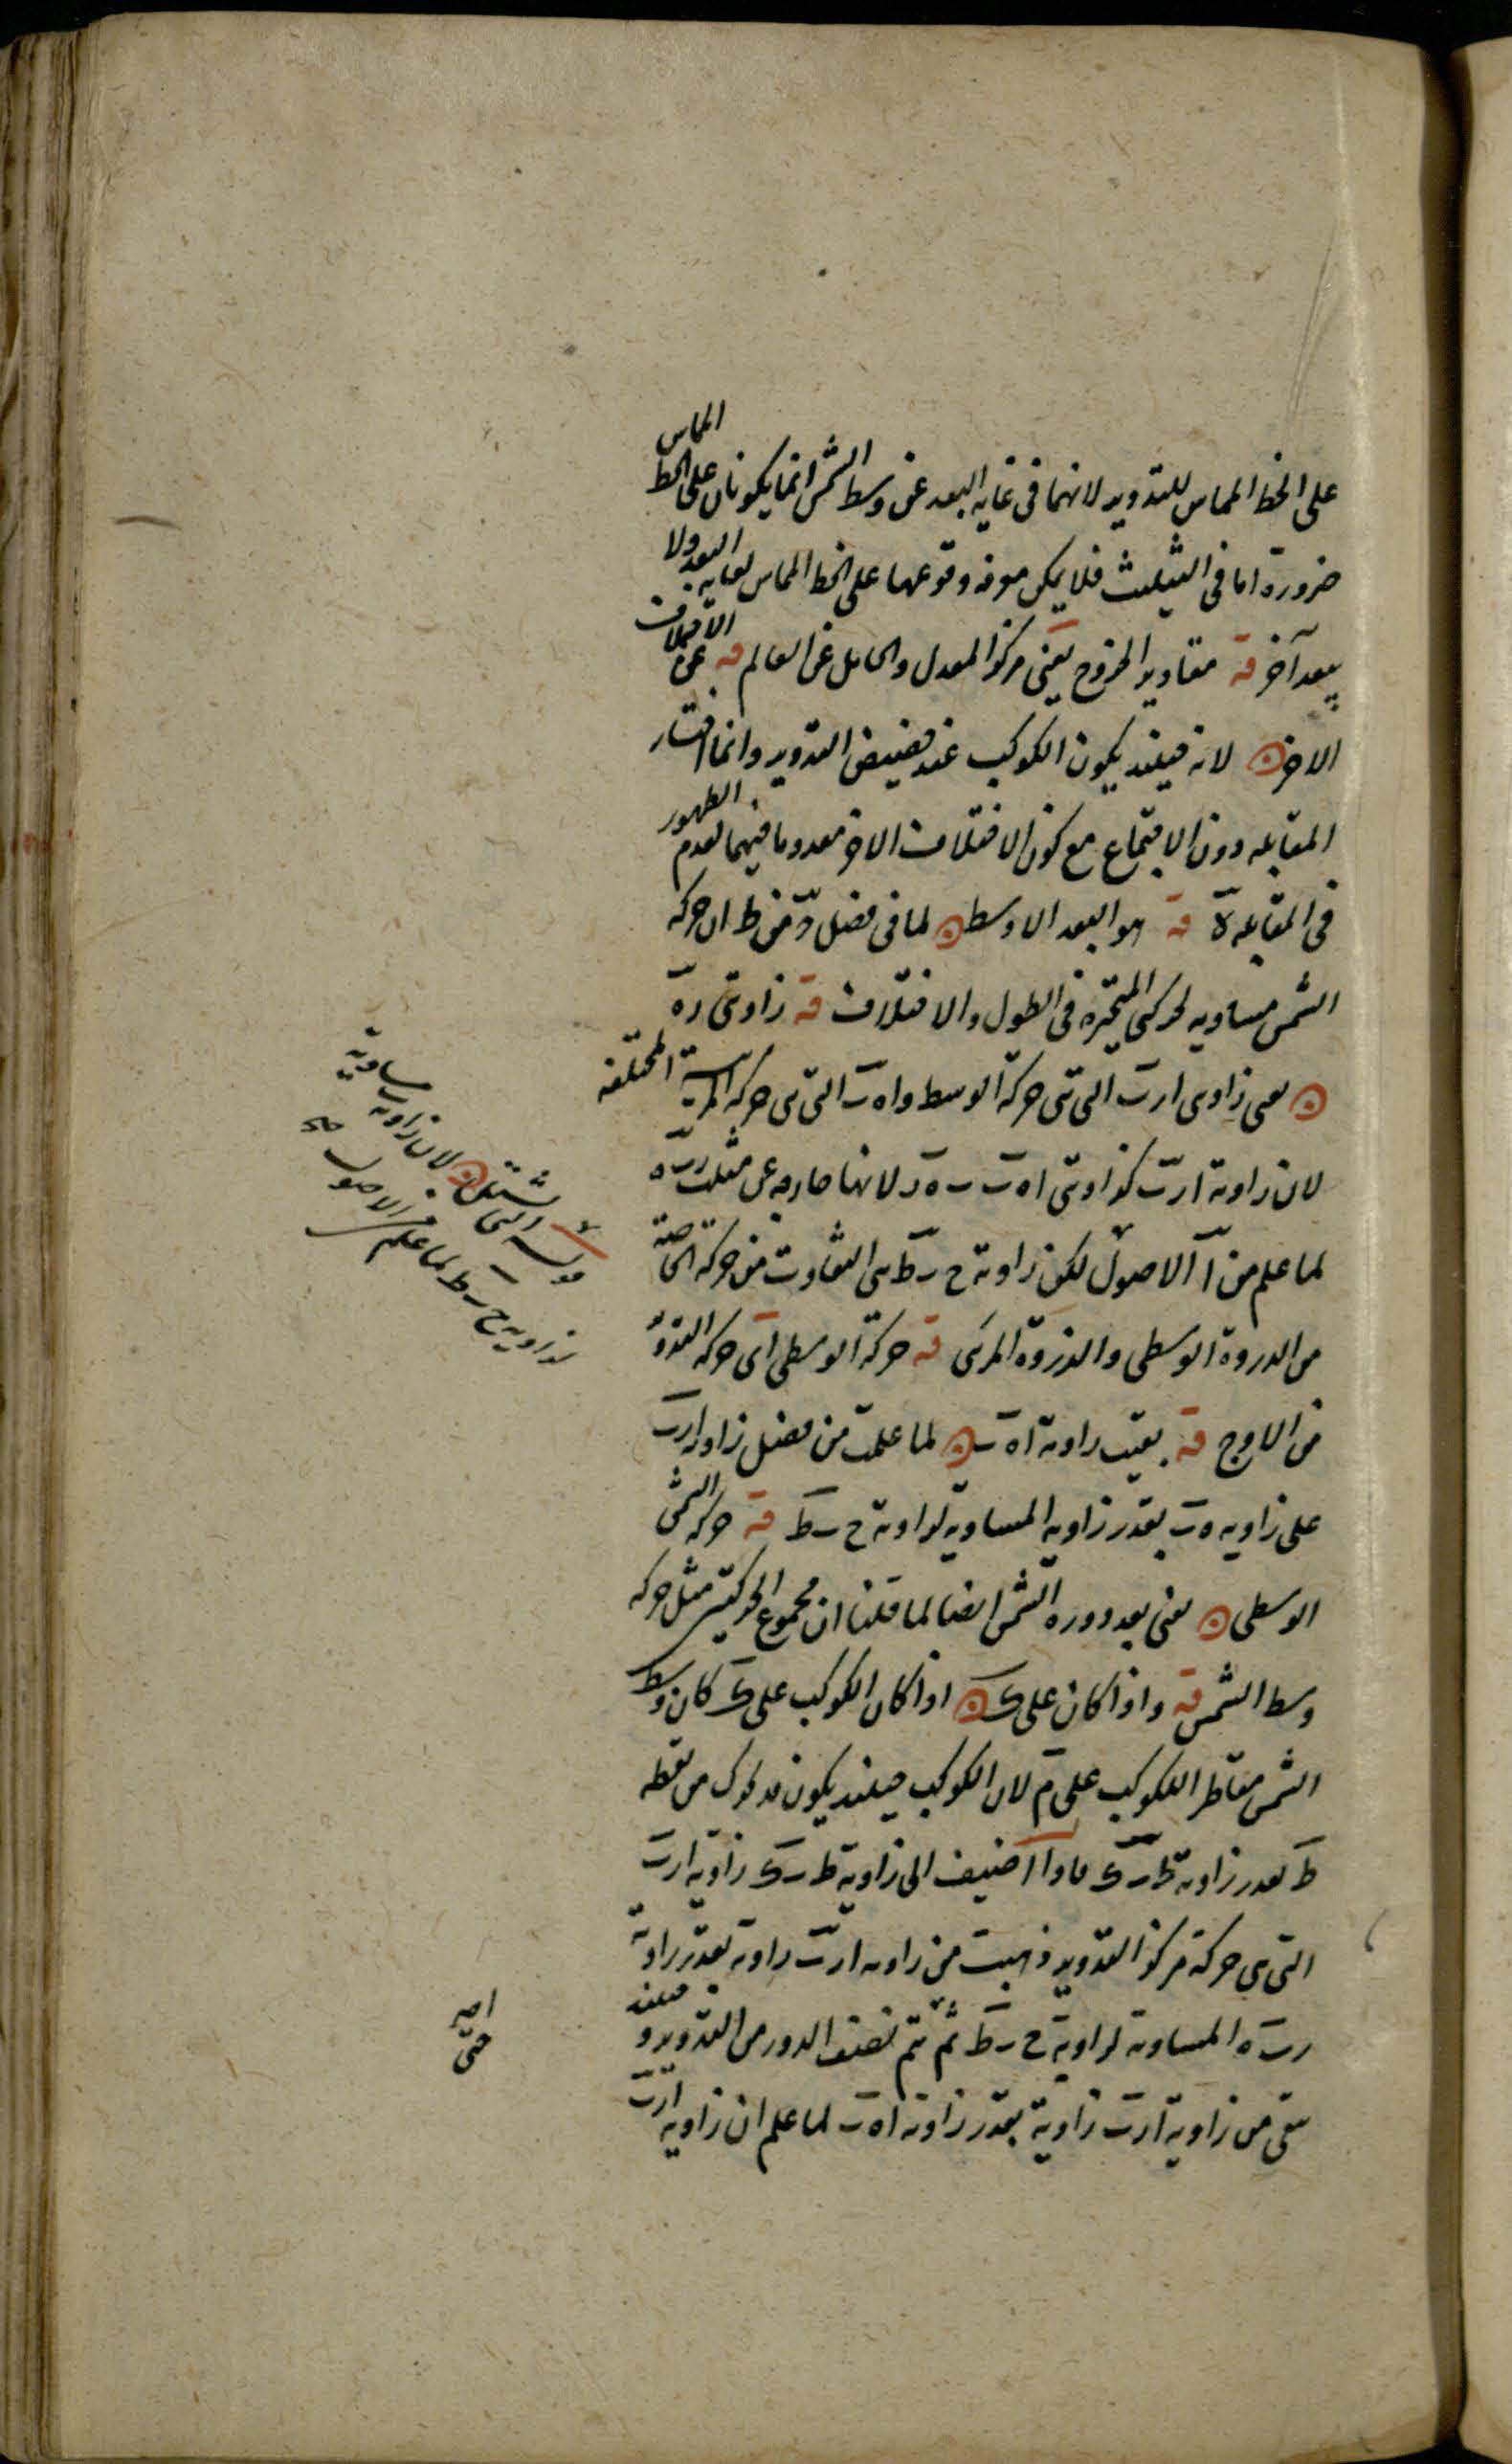 على الخط المماس للتدوير لانهما في غاية البعد عن وسط الشمس انما يكونان على الخط المماس
ضرورة اما في التثليث فلا يمكن معرفه وقوعهما على الخط المماس لغايه البعد ولا
ببعد آخر قه مقادير الخروج يعنى مركز المعدل والحامل عن العالم قه عن الاختلاف
الاخر لانه حينئذ يكون الكوكب عند حضيض التدوير وانما اختار
المقابله دون الاجتماع مع كون الاختلاف الاخر معدوما فيهما لعدم الظهور
فى المقابله قه هو البعد الاوسط لما فى فصل من ط ان حركه
الشمس مساويه لحركتى المتحيرة فى الطول والاختلاف قه زاويتى ره
يعنى زاويتى ارب التى هى حركة الوسط واهب التى هى حركة المختلفه
لان زاوية ارب كزاويتى اهب ب ه ر لانها خارجه عن مثلث ر ب ه
لما علم من آ الاصول لكن زاوية ح ب ط هى التفاوت من حركة الخاصة
من الدروة الوسطى والذروة المرئى قه حركة الوسطى اى حركه التدوير
من الاوج قه بقيت زاوية اهب لما علمت من فضل زاوية ارب
على زاويه ه ب بقدر زاويه المساويه لزاوية ح ب ط قه حركه الشمس
الوسطى يعنى بعد دوره الشمس ايضا لما قلنا ان مجموع الحركتين مثل حركه
وسط الشمس قه واذا كان على ك اذا كان الكوكب على ك كان وسط
الشمس مقاطر الكوكب على م لان الكوكب حينئذ يكون قد تحرك من نقطه
ط بقدر زاوية ط ب ك فاذا اضيف الى زاوية ط ب ك زاوية ارب
التى هى حركة مركز التدوير ذهبت من زاويه ارب زاوية بقدر زاوية
ر ب ه المساويه لزاوية ح ب ط ثم تتم نصف الدور من التدوير و حينئذ
بقى من زاوية ارب زاوية بقدر زاوية اهب لما علم ان زاوية ارب
لان زاوية مساوية
لزاويه ح ب ط لما علم من الاصول